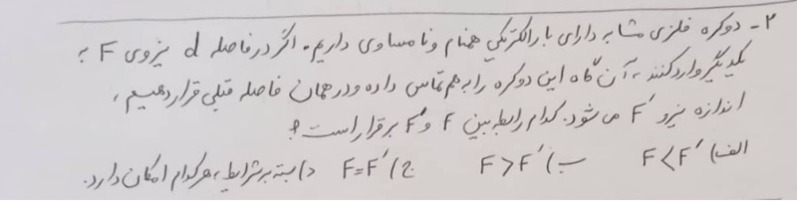 ۲- دو کره فلزی مشابه دارای بار الکتریکی همنام و نامساوی داریم. اگر در فاصله d نیروی F به
یکدیگر وارد کنند، آن گاه این دو کره را به هم تماس داده و در همان فاصله قبلی قرار دهیم،
اندازه نیرو F' می شود. کدام رابطه بین F و F' برقرار است؟
الف) F < F' ب) F > F' ج) F = F' د) بسته به شرایط، هر کدام امکان دارد.